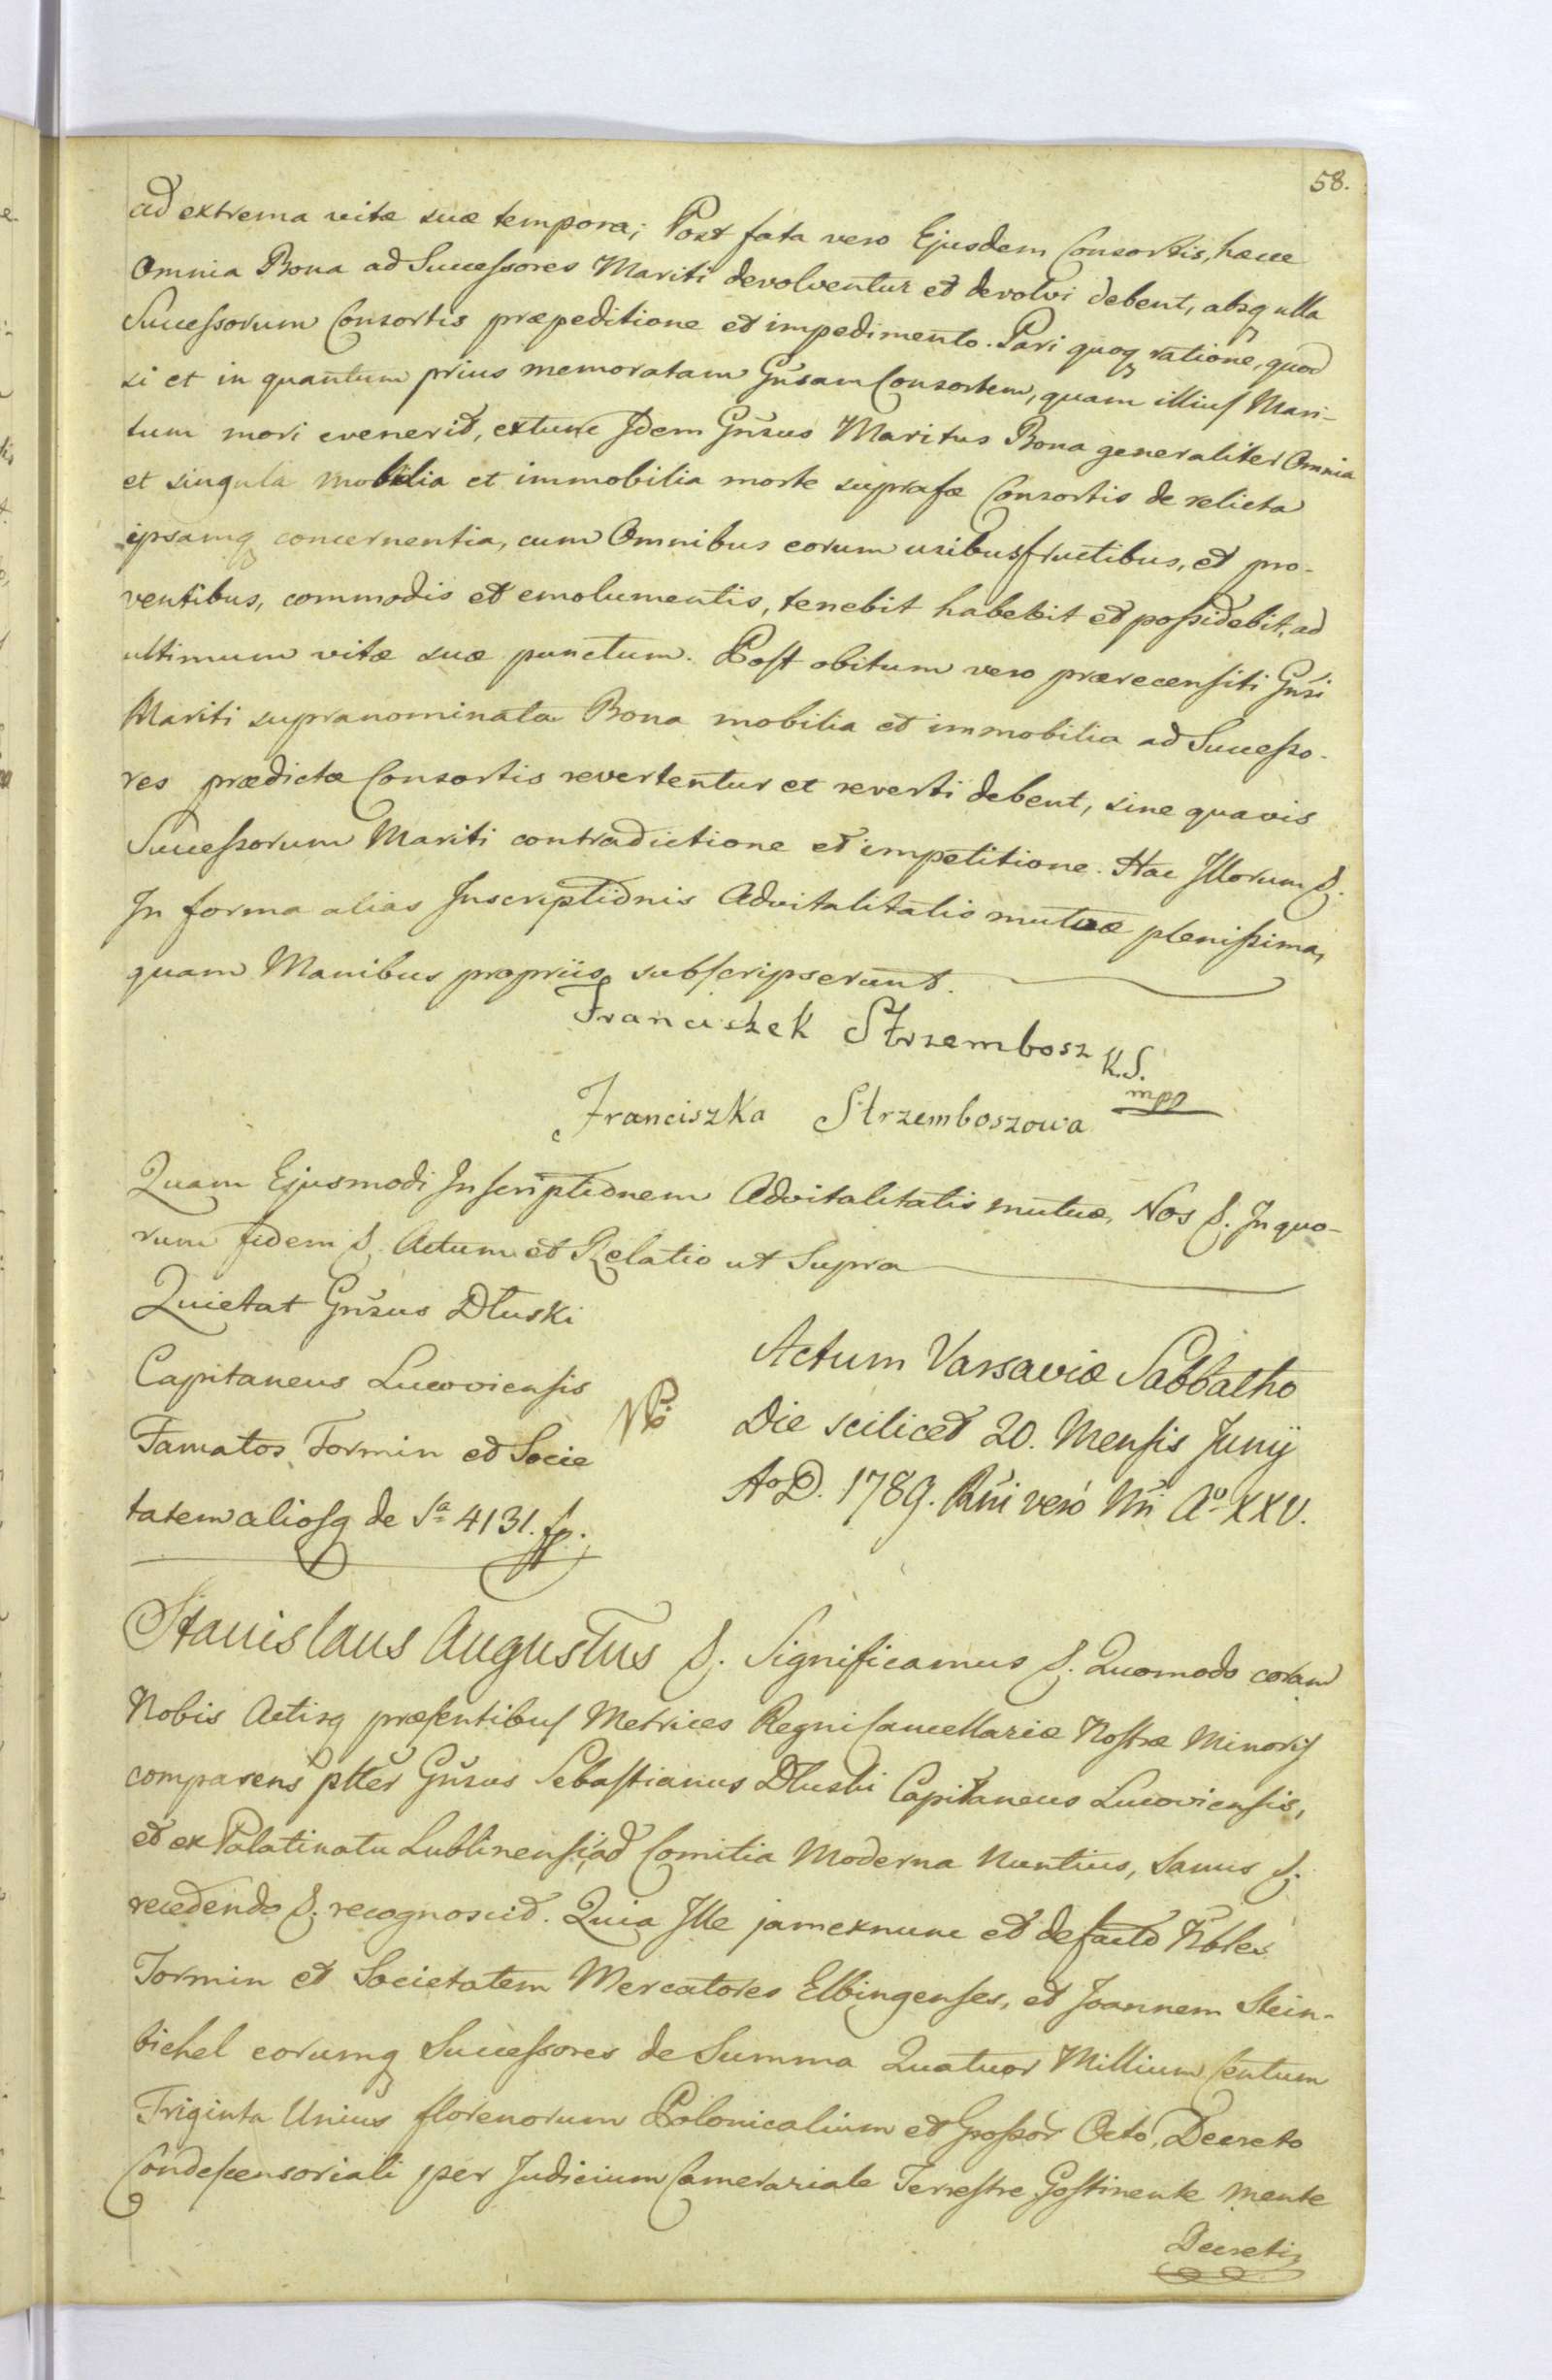 58.
ad extrema vitæ suæ tempora; Post fata vero Ejusdem Consortis, hæcce
Omnia Bona ad Successores Mariti devolventur et devolvi debent, absq ulla
Successorum Consortis præpeditione et impedimento. Pari quoq ratione, quod
si et in quantum prius memoratam Gñsam Consortem, quam illius Mari-
tum mori evenerit, extunc Idem Gñsus Maritus Bona generaliter Omnia
et singula mobilia et immobilia morte suprafæ Consortis derelicta
ipsamq concernentia, cum Omnibus eorum usibusfructibus, et pro-
ventibus, commodis et emolumentis, tenebit habebit et possidebit, ad
ultimum vitæ suæ punctum. Post obitum vero prærecensiti Gñsi
Mariti supranominata Bona mobilia et immobilia ad Successo-
res prædictæ Consortis revertentur et reverti debent, sine quavis
Successorum Mariti contradictione et impetitione. Hac Illorum &.
In forma alias Inscriptionis Advitalitatis mutuæ plenissima,
quam Manibus propriis subscripserunt.
Franciszek Strzembosz K.S.
mpp
Franciszka Strzemboszowa
Quam Ejusmodi Inscriptionem Advitalitatis mutuæ, Nos &. In quo-
rum fidem &. Actum et Relatio ut Supra
Quietat Gñsus Dłuski
Capitaneus Lucoviensis
Famatos Formin et Socie
tatem aliosq de Sa 4131. fp.
Actum Varsaviæ Sabbatho
Die scilicet 20. Mensis Junij
Ao D. 1789. Rñi vero Nri Ao XXV.
Stanislaus Augustus &. Significamus &. Quomodo coram
Nobis Actisq præsentibus Metrices Regni Cancellariæ Nostræ Minoris
comparens pltter Gñsus Sebastianus Dłuski Capitaneus Lucoviensis,
et ex Palatinatu Lublinensi, ad Comitia Moderna Nuntius, sanus &.
recedendo &. recognoscit. Quia Ille jamexnunc et defacto Nbles
Formin et Societatem Mercatores Elbingenses, et Joannem Stein-
bichel eorumq Successores de Summa Quatuor Millium Centum
Triginta Unius florenorum Polonicalium et Grossor Octo, Decreto
Condescensoriali per Judicium Camerariale Terrestre Gostinense mente
Decreti